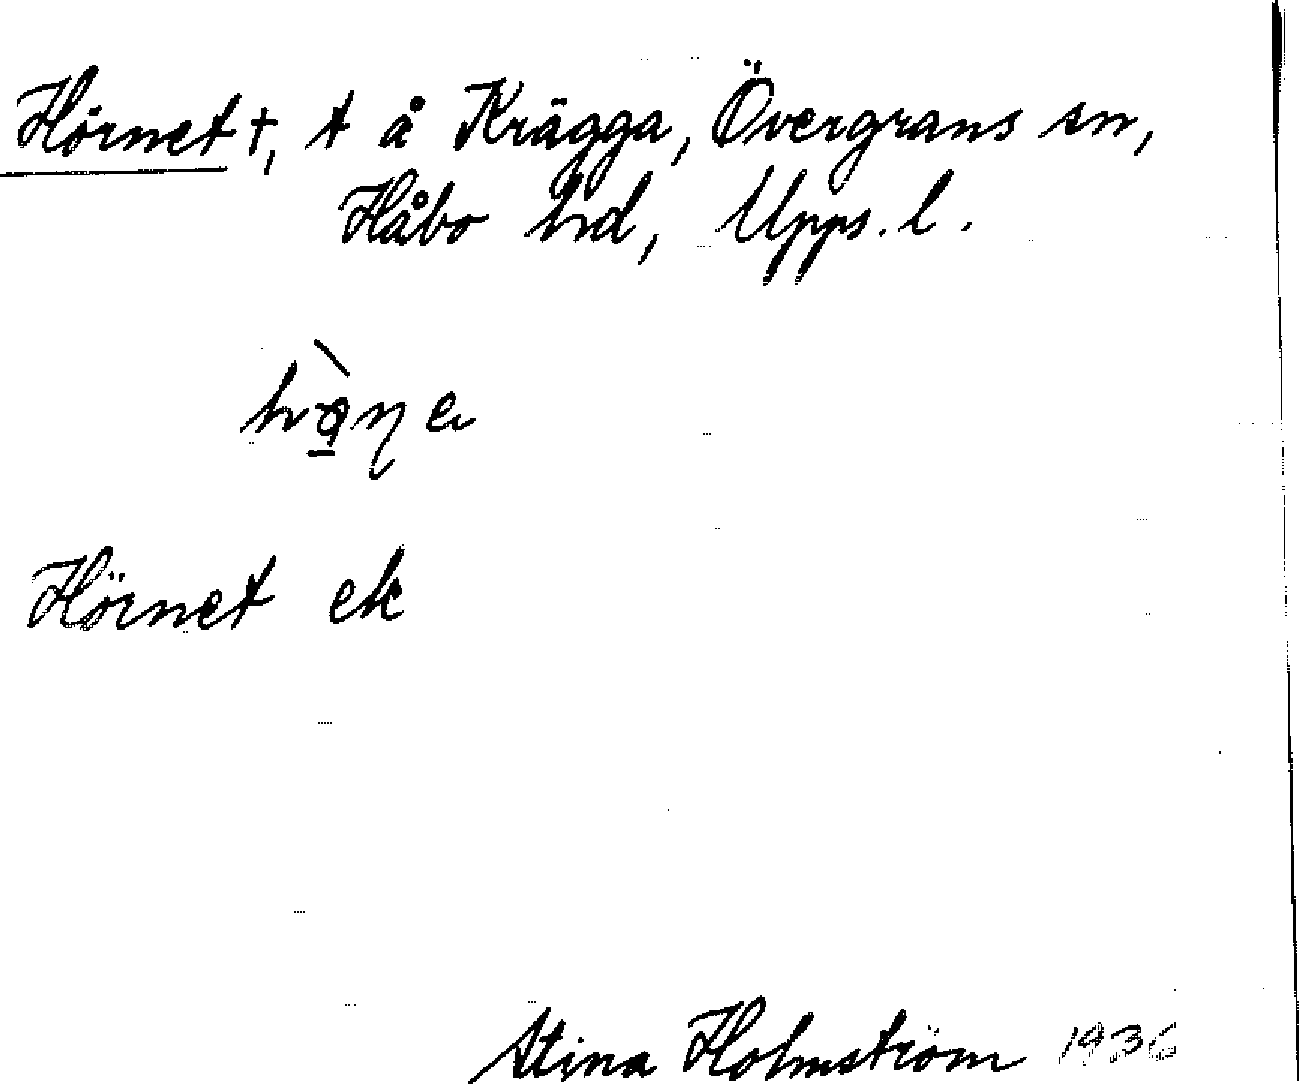 Hörnet †, t å Krägga, Övergrans sn,
Håbo hd, Upps. l.
Hörnet ek
Stina Holmström 1936